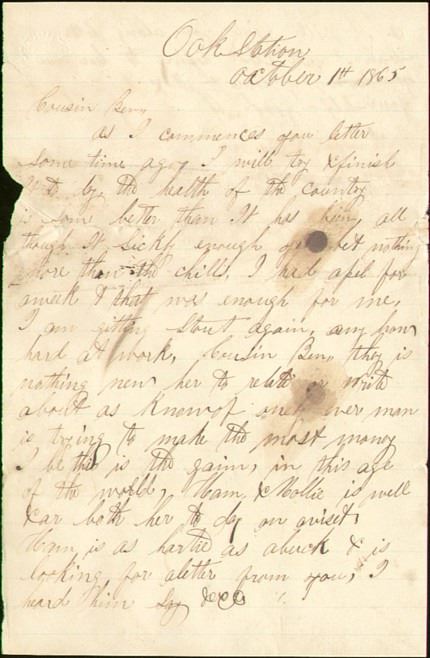 Oak Station
October 1st 1865
Cousin Ben,
as I commences you letter
some time ago, I will try & finish
it to day the health of the country
is some better then It has bin, all
though It sickly enough yet but nothing
more then the chills, I had a spel for
aweek & that was enough for me,
I am gitting stout again, any how
hard at work, Cousin Ben, they is
nothing new her to relate or write
about as I know of only ever man
is trying to make the most money
this is the gaim, in this age
of the world, Ham & Mollie is well
& ar both her to day on aviset,
Ham is as hartie as abuck & is
looking for aletter from you, I
heard him say